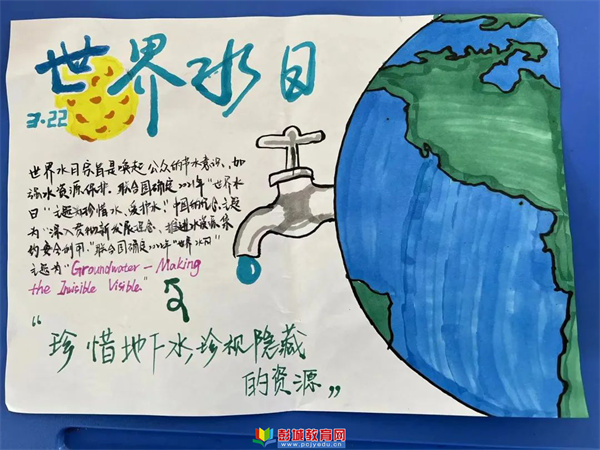 世界水日
3.22
世界水日宗旨是唤起公众的节水意识、加
强水资源保护。联合国确定2021年"世界水
日"主题为珍惜水、爱护水。"中国纪念主题
为"深入贯彻新发展理念,推进水资源集
约安全利用。"联合国确定2022年"世界水日"
主题为"Groundwater-Making
the Invisible Visible."
"珍惜地下水,珍视隐藏
的资源"
彭城教育网
www.pcjyedu.cn